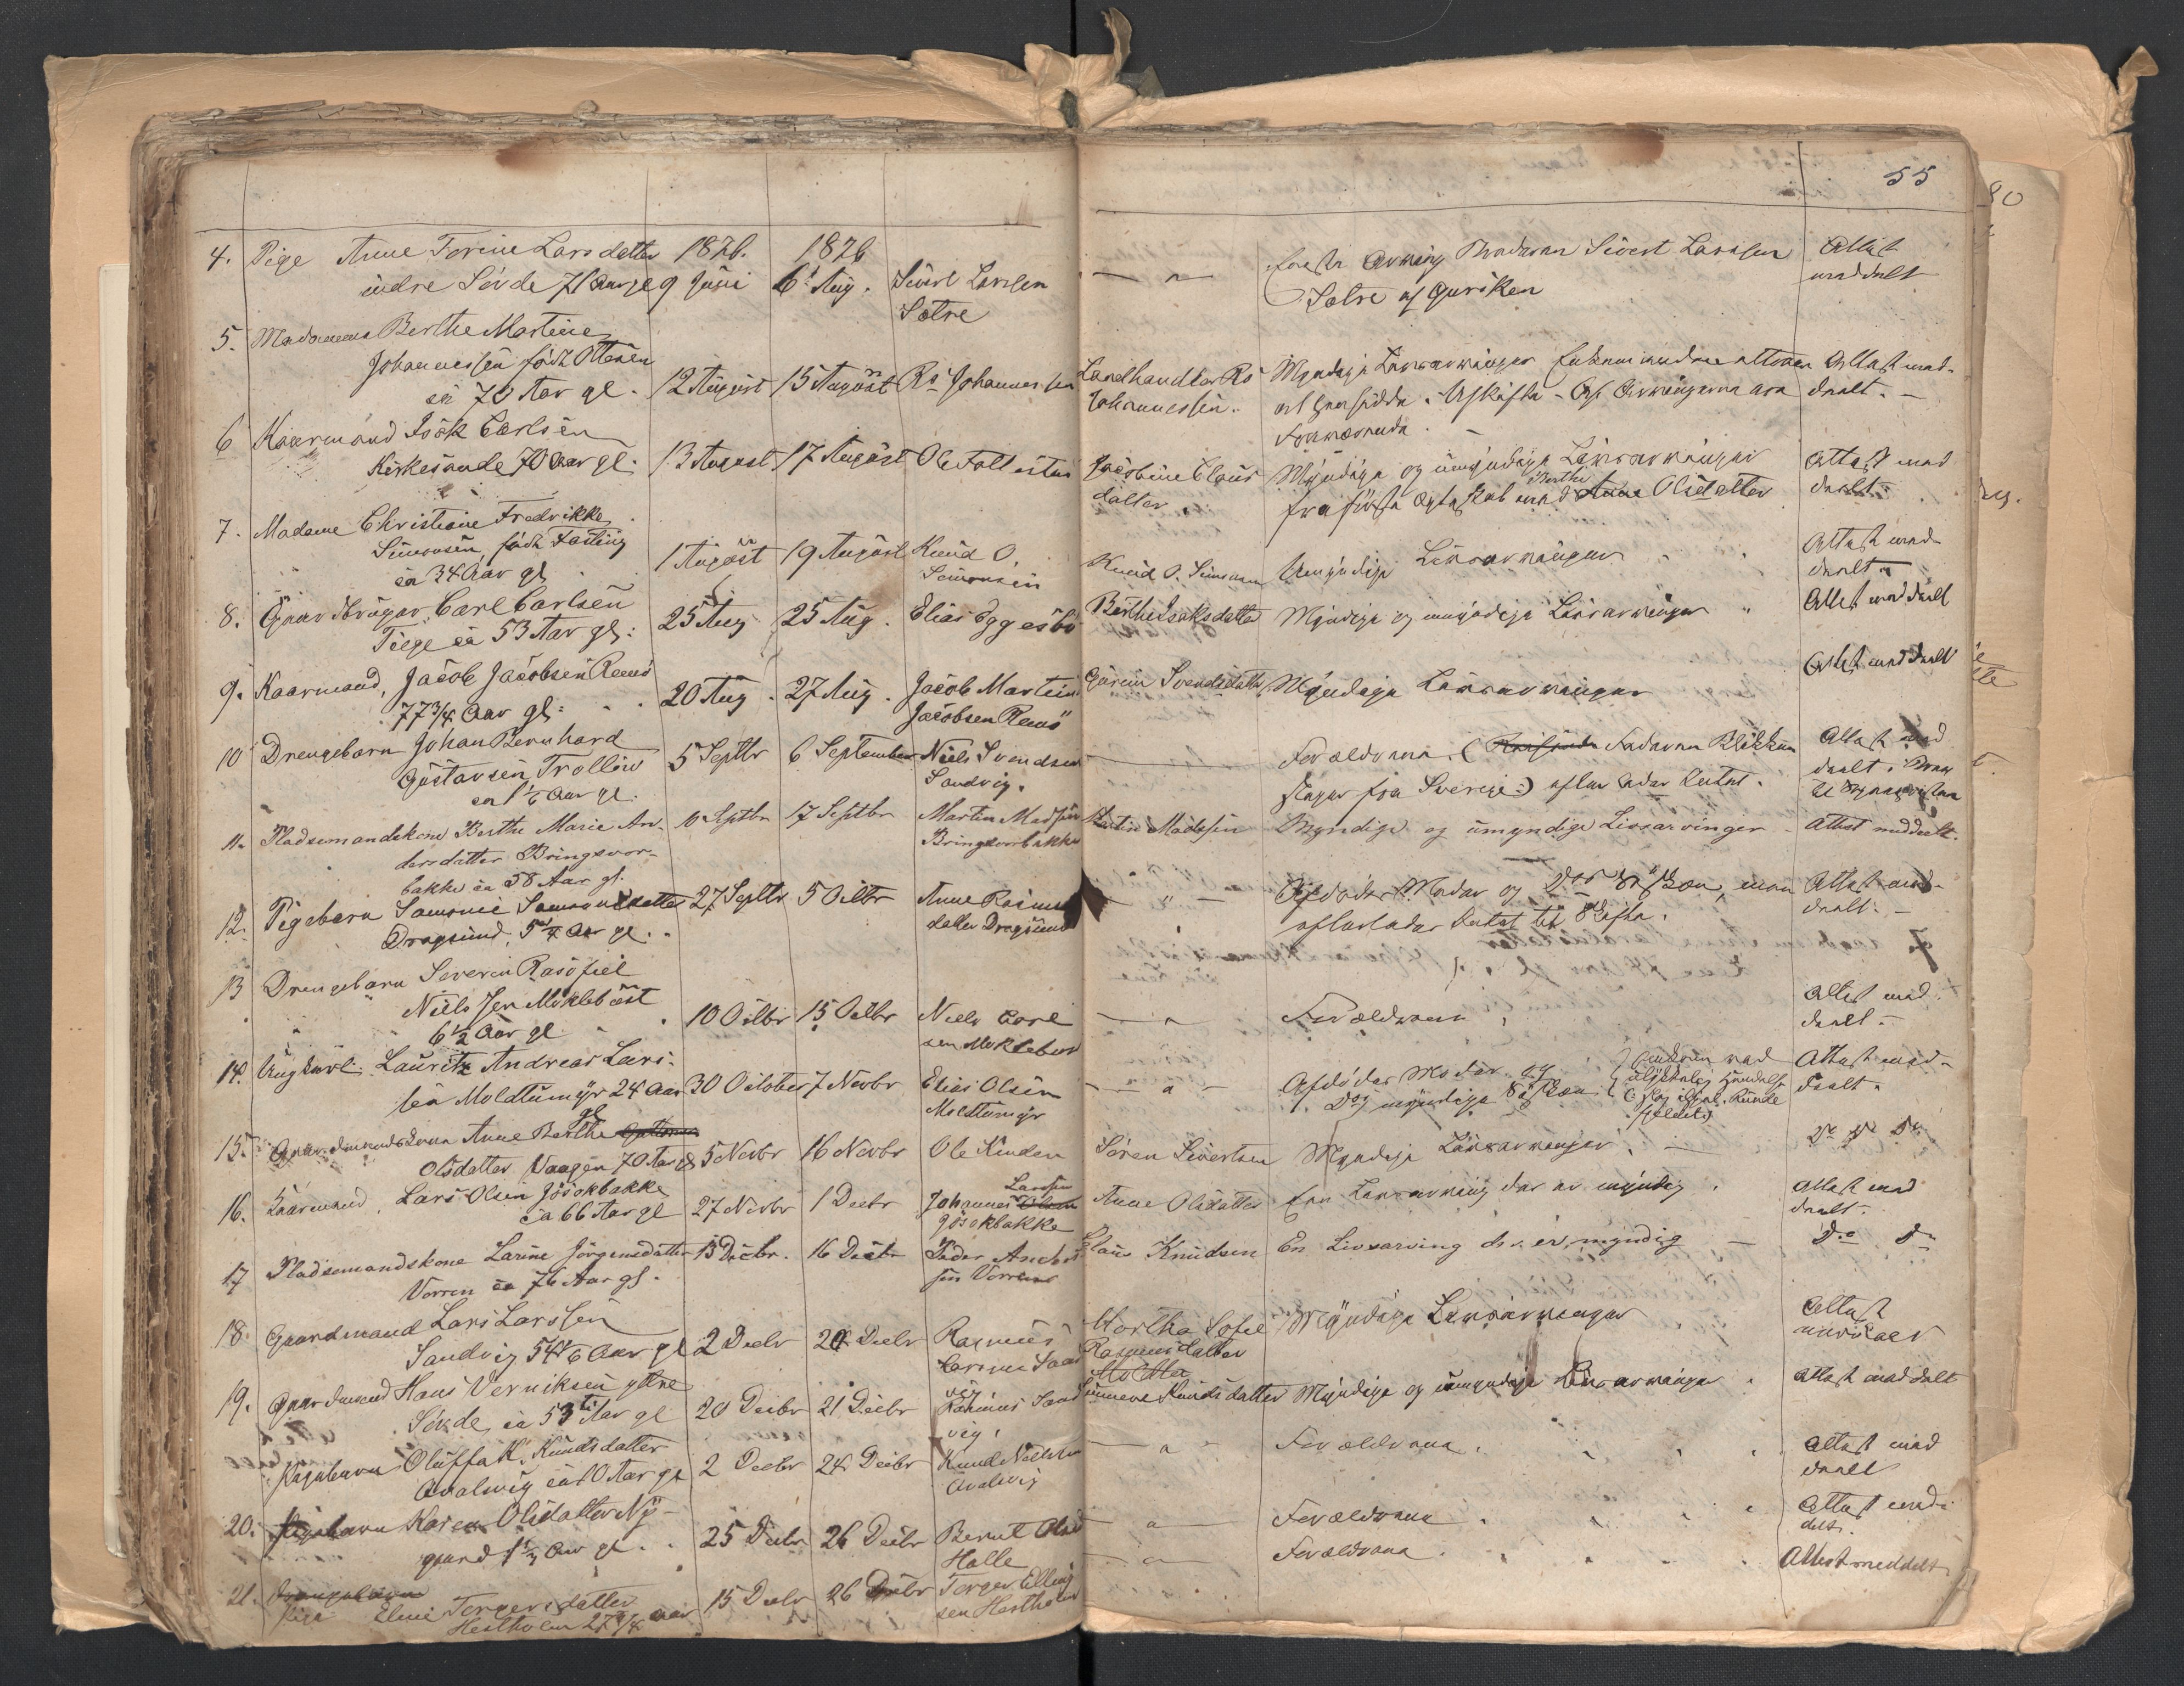 55
4. Pige Anne Terine Larsdatter 1876. 1876
indre Sörde 71 Aar gl 9 Juni 6 Aug. Sivert Larsen
Sætre
eneste Arving Broderen Sivert Larssen
Sætre af Gursken
Attest
meddelt
5. Madamme Berthe Martine
Johannessen födt Ottesen
ca 70 Aar gl. 12 August 15 August Rs Johannessen
Landhandler Rs
Johannessen.
Myndige Livsarvinger
Attest med-
deelt. -
6 Kaarmand Isak Carlsen
Kirkesunde 70 Aar gl. 13 August 17 August Ole
Jacobine Claus
datter.
Myndige og umyndige Livsarvinger
fra første Ægteskab med Berthe Anne Olsdatter
Attest med
deelt.
7. Madame Christiane Fredrikke
Simonsen, födt Fasting
ca 34 Aar gl. 1 August 19 August Knud O.
Simonsen
Knud O. Simonsen Umyndige Livsarvinger
Attest med-
deelt.
8. Gaardbruger Carl Carlsen
Teige ca 53 Aar gl: 25 Aug 25 Aug. Elias Eggesbö
Berthe Isaksdatter Myndige og umyndige Livsarvinger "
Attest meddeelt
9. Kaarmand, Jacob Jacobsen Remö
77 3/4 Aar gl: 20 Aug. 27 Aug. Jacob Martin
Jacobsen Remö
Svendsdatter Myndige Livsarvinger
Attest meddeelt
10 Drengebarn Johan Bernhard
Gustavsen Trollin
ca 1 1/6 Aar gl. 5 Septbr 6 September Niels Svendsen
Sandvig.
Forældrene. ( Faderen Blikken
slager fra Sverige:) efterlader Intet.
Attest med
deelt.
11. Pladsemandskone Berthe Marie An-
dersdatter Bringsvor-
bakke ca 58 Aar gl. 10 Septbr 17 Septbr Martin Madsen
Bringsvorbakke
Martin Madssen Myndige og umyndige Livsarvinger - Attest meddeelt.
12. Pigebarn Samonie Samonsdatter
Dragsund, 5 1/4 Aar gl. 27 Septbr 5 Octbr Anne Rasmus
datter Dragsund
- " - Afdödes Moder og Søskæn, men
efterlader Intet til Skifte.
Attest med-
deelt. -
13 Drengebarn Severin Rasofiel
Nielssen Moklebust
6 1/2 Aar gl. 10 Octbr 15 Octbr Niels Carl
sen Moklebust
Forældrene
Attest med-
deelt. -
14. Ungkarl. Lauritz Andreas Lars-
sen Moldtumyr 24 Aar
gl 30 October 7 Novbr Elias Olsen
Moldtumyr
Afdödes Moder og
myndige Søskæn
Attest med-
deelt.
15. Gaardmandskone Anne Berthe
Olsdatter Vaagen 70 Aar gl 5 Novbr 16 Novbr Ole Kinden
Sören Sivertsen Myndige Livsarvinger. -
Do Do Do
16. Kaarmand, Lars Olsen Jösokbakke
ca 66 Aar gl 27 Novbr 1 Decbr Johannes Larssen Olsen
Jösokbakke
Anne Olsdatter Een Livsarving der er myndig.
Attest med
deelt.
17 Pladsemandskone Larine Jörgensdatter
Vorren ca 76 Aar gl. 13 Decbr. 16 Decbr Peder Anders
sen Vorren
Claus Knudsen En Livsarving der er myndig - Do Do
18. Gaardmand Lars Larssen
Sandvig 54 1/6 Aar gl 2 Decbr 20 Decbr Rasmus
Larssen Sand
vig
Martha Sofie
Rasmusdatter
Myndige Livsarvinger
Attest
meddeelt
19. Gaardmand Hans Verniksen ytre
Sörde, ca 53 Aar gl 20 Decbr 21 Decbr Rasmus Sand
vig.
Sunneve Knudsdatter Myndige og umyndige Livsarvinger. Attest meddelt
Pigebarn Oluffa K. Knudsdatter
Aralsvig ca 10 Aar gl 2 Decbr 24 Decbr Knud Nielssen
Aralsvig
Forældrene. Attest med
deelt
20. Pigebarn Karen Olsdatter Ny-
gaard 1 1/2 Aar gl. 25 Decbr 26 Decbr Bernt Olsen
Holle
Forældrene. Attest med-
delt.
21. Drengebarn
Pige Elinie Torgersdatter
Hestholm 27 3/4 Aar 15 Decbr 26 Decbr Torger Elling
sen Hestholm
Forældrene. Attest meddelt
80